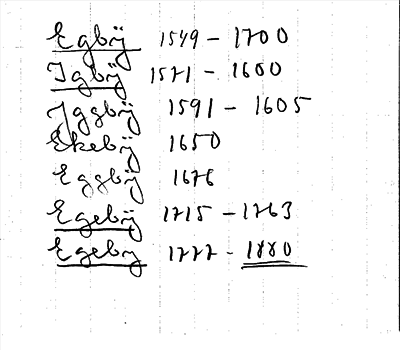 Egbÿ 1549 - 1700
Igbÿ 1571 - 1600
Iggbÿ 1591 - 1605
Ekebÿ 1650
Eggbÿ 1676
Egebÿ 1715 - 1763
Egeby 1777 - 1880